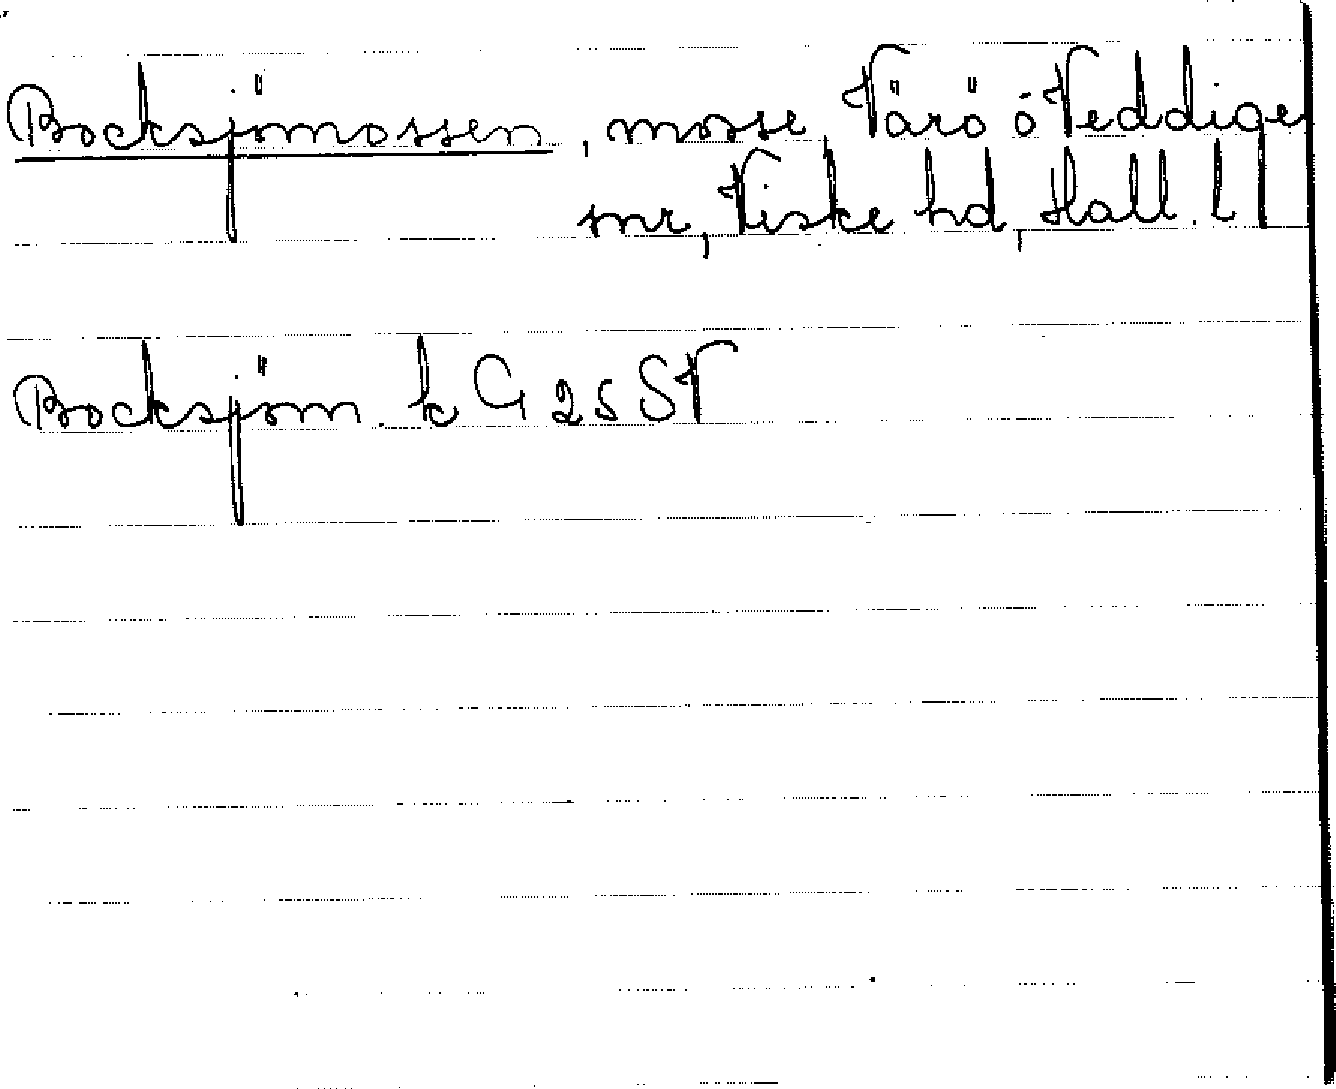 Bocksjömossen, mosse, Värö o Veddige
snr, Viske hd, Hall. l
Bocksjöm. k G 25 SV